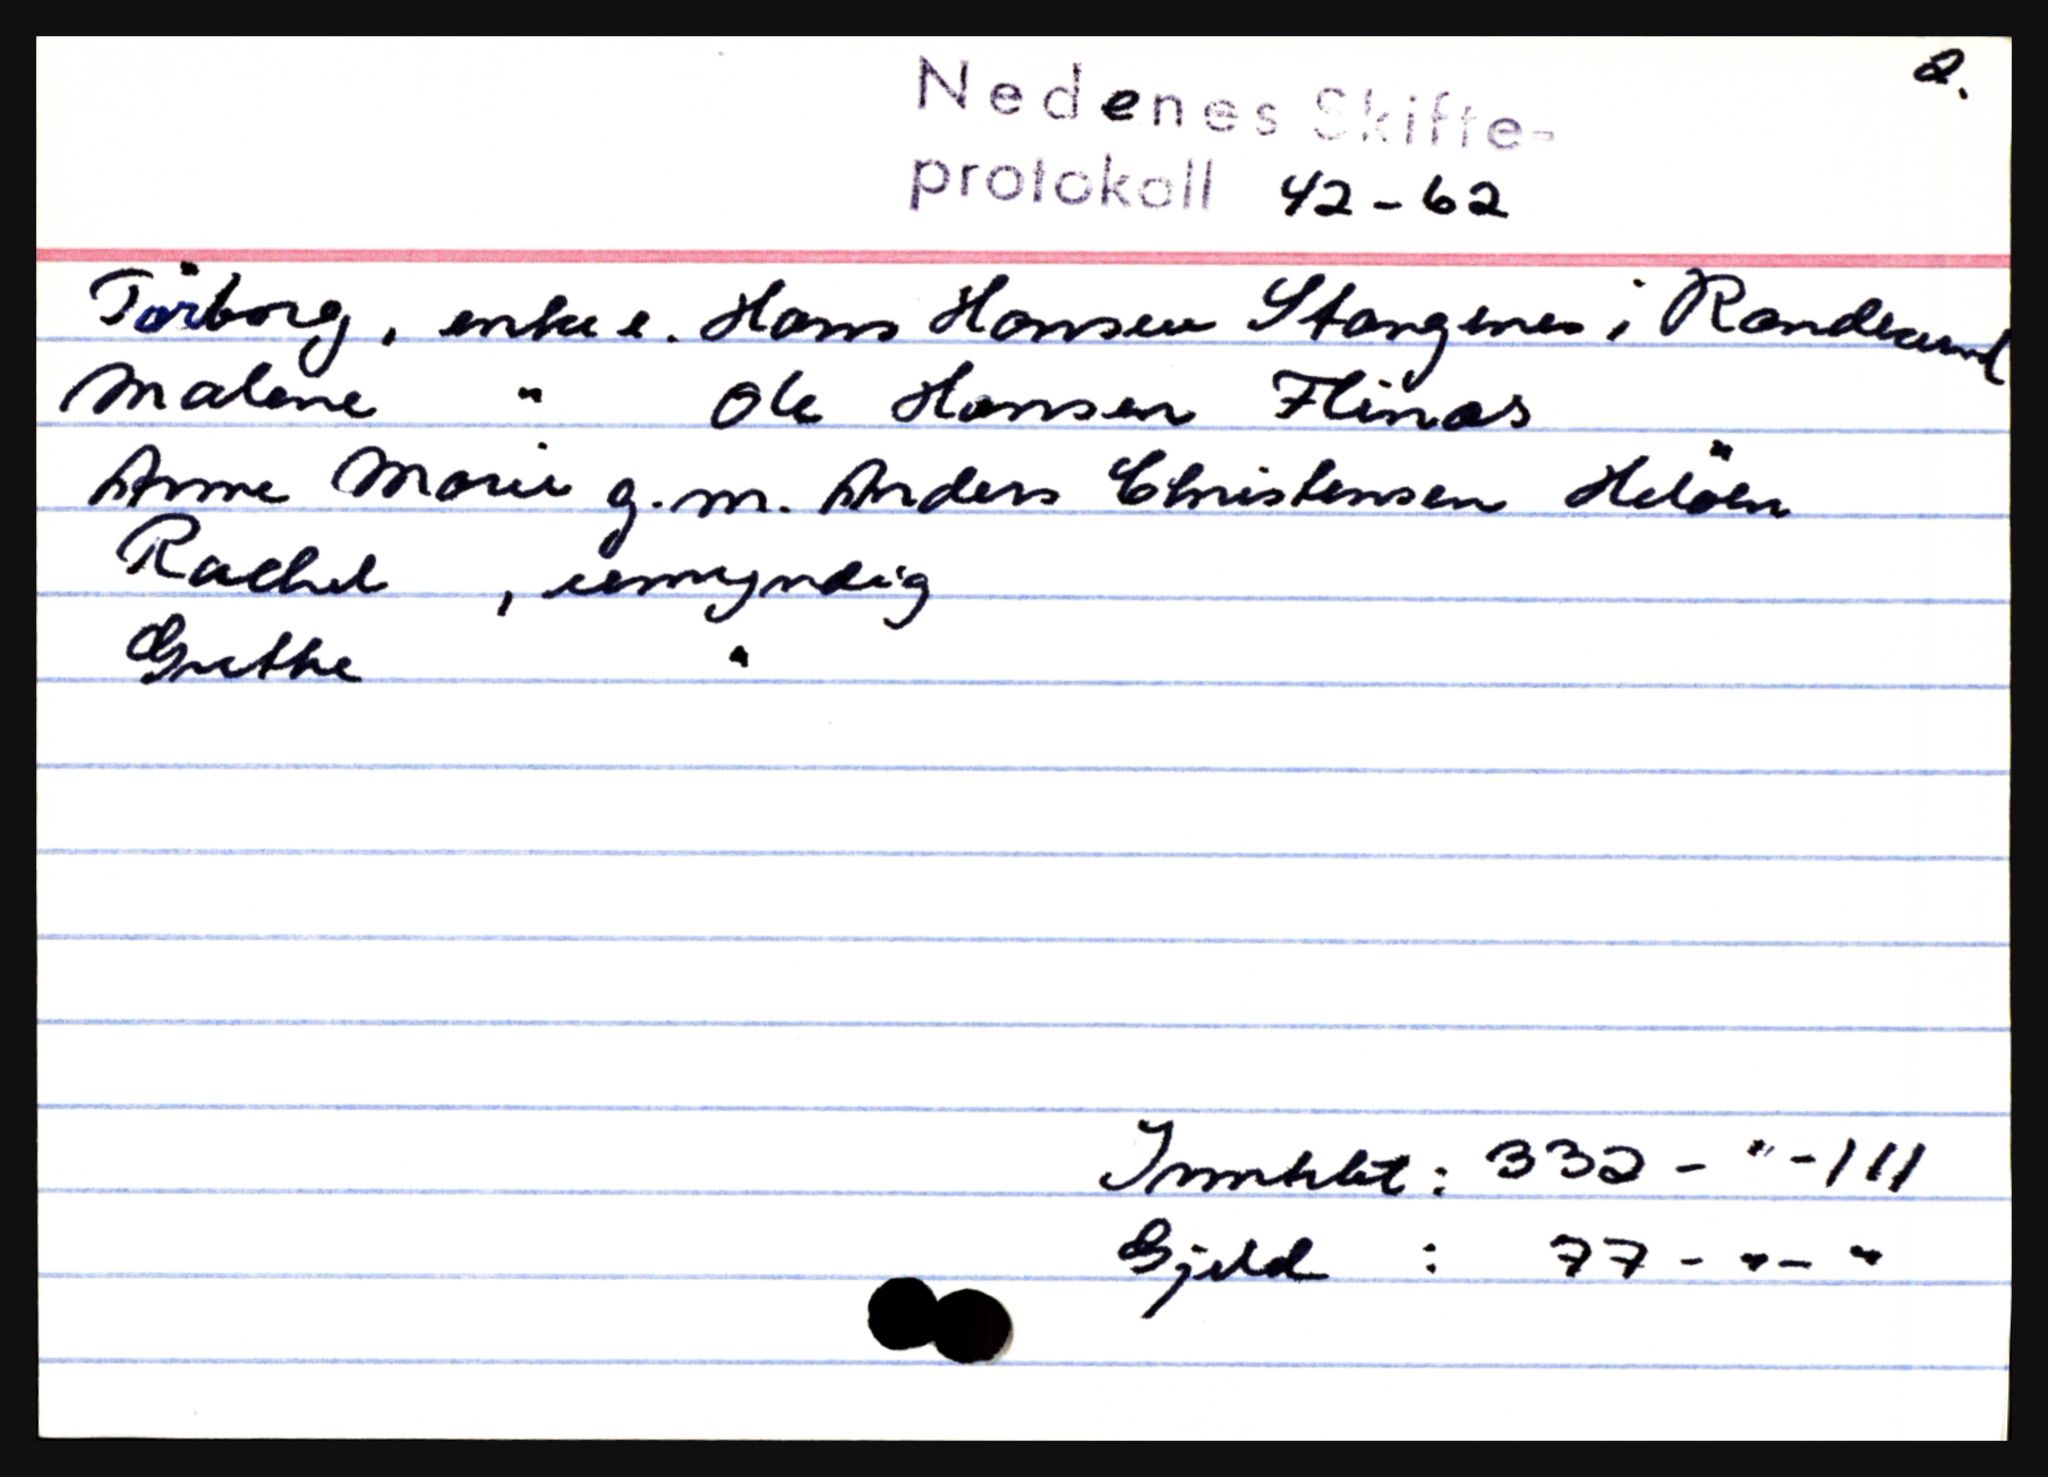 2.
Nedenes Skifte-
protokoll 42-62
Törborg, enke e. Hans Hansen Stangenes i Randesund
Malene " Ole Hansen Flinæs
Anne Marie g.m. Anders Christensen Helöen
Rachel , umyndig
Grethe "
Inntekt: 332 - " - 111
Gjeld : 77 - " - "